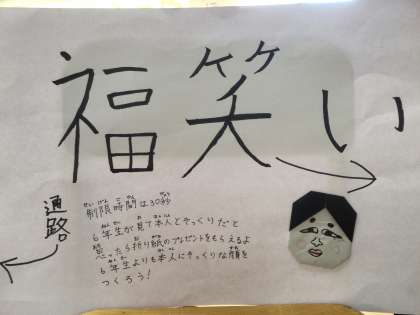 福笑い
通路
制限時間は30秒
6年生が見て本人とそっくりだと
思ったら折り紙のプレゼントをもらえるよ
6年生よりも本人にそっくりな顔を
つくろう!